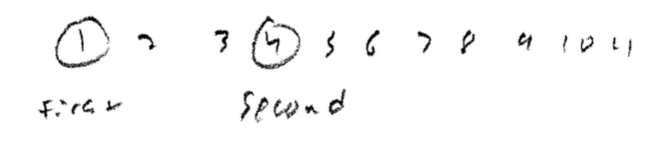 1 2 3 4 5 6 7 8 9 10 11
First Second